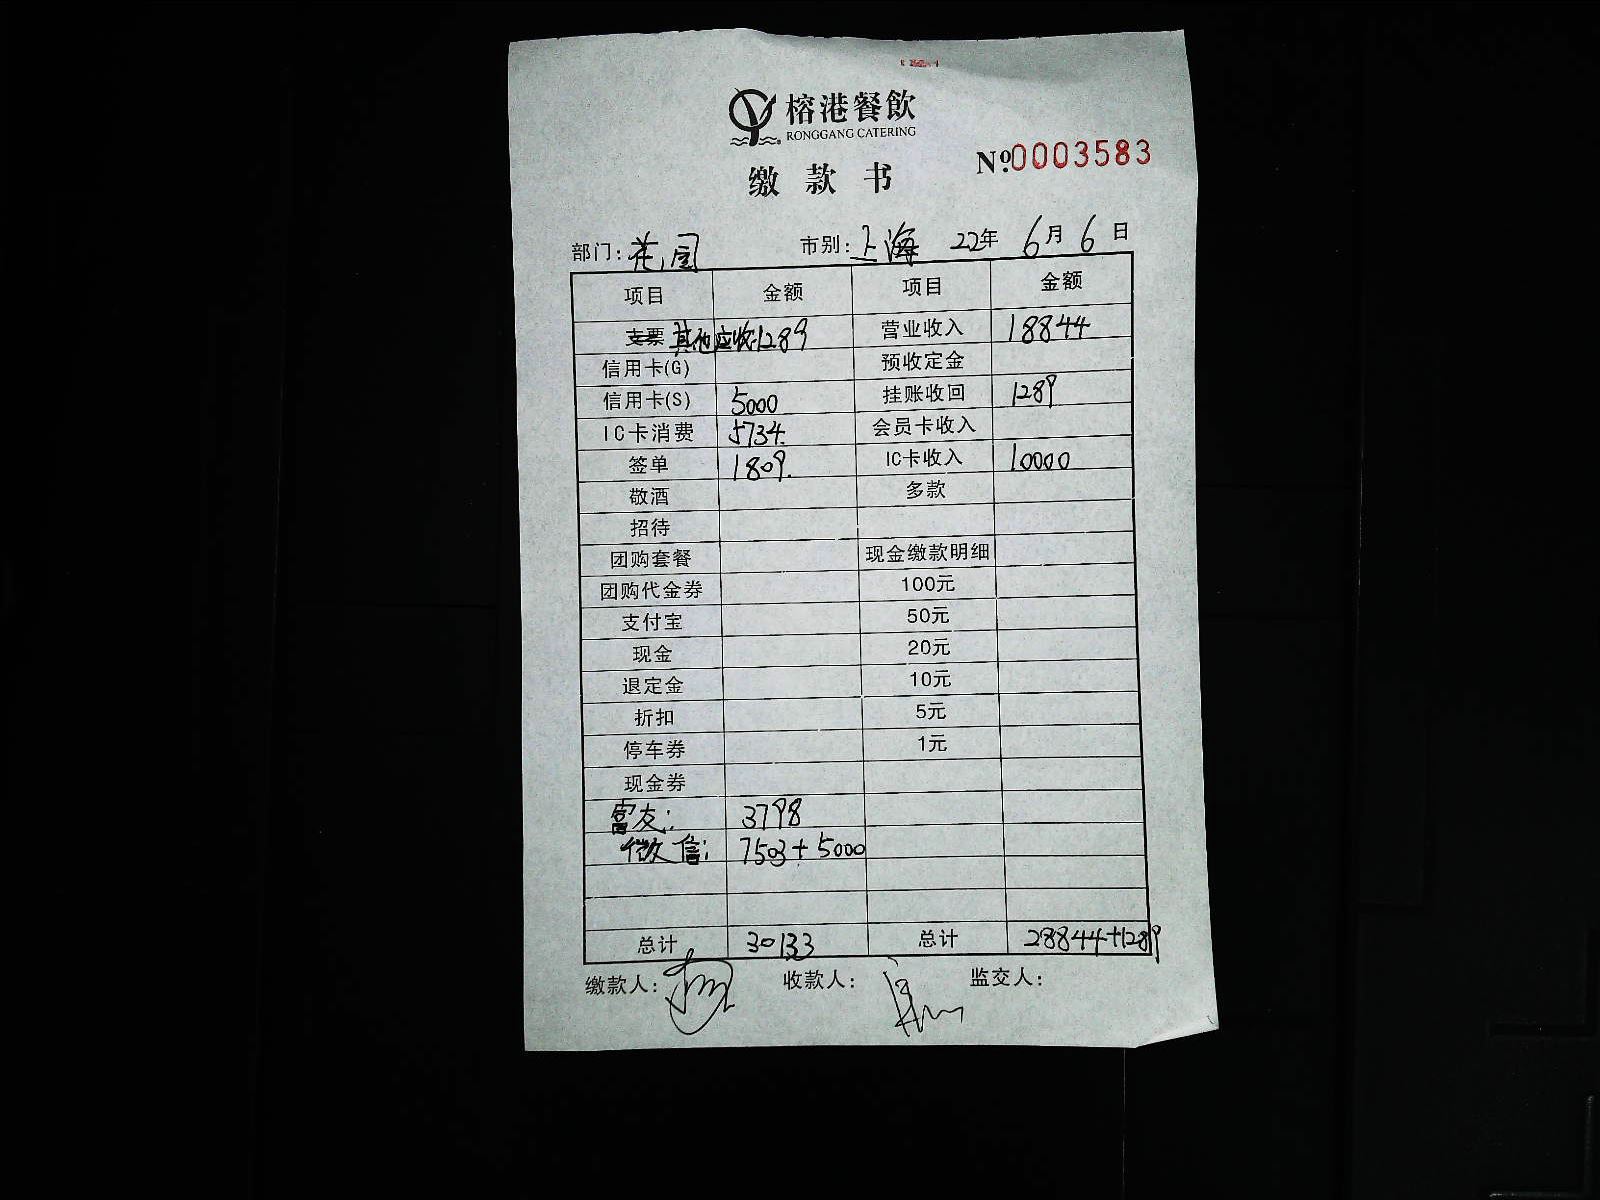 榕港餐飲
RONGGANG CATERING
缴款书
№0003583
部门: 花园 市别: 上海 22年 6月 6日
项目 金额 项目 金额
支票 其他应收:1289 营业收入 18844
信用卡(G) 预收定金
信用卡(S) 5000 挂账收回 1289
IC卡消费 5734. 会员卡收入
签单 1809. IC卡收入 10000
敬酒 多款
招待
团购套餐 现金缴款明细
团购代金券 100元
支付宝 50元
现金 20元
退定金 10元
折扣 5元
停车券 1元
现金券
富友: 3798
微信: 7503+5000
总计 30133 总计 28844+1289
缴款人: 收款人: 监交人: